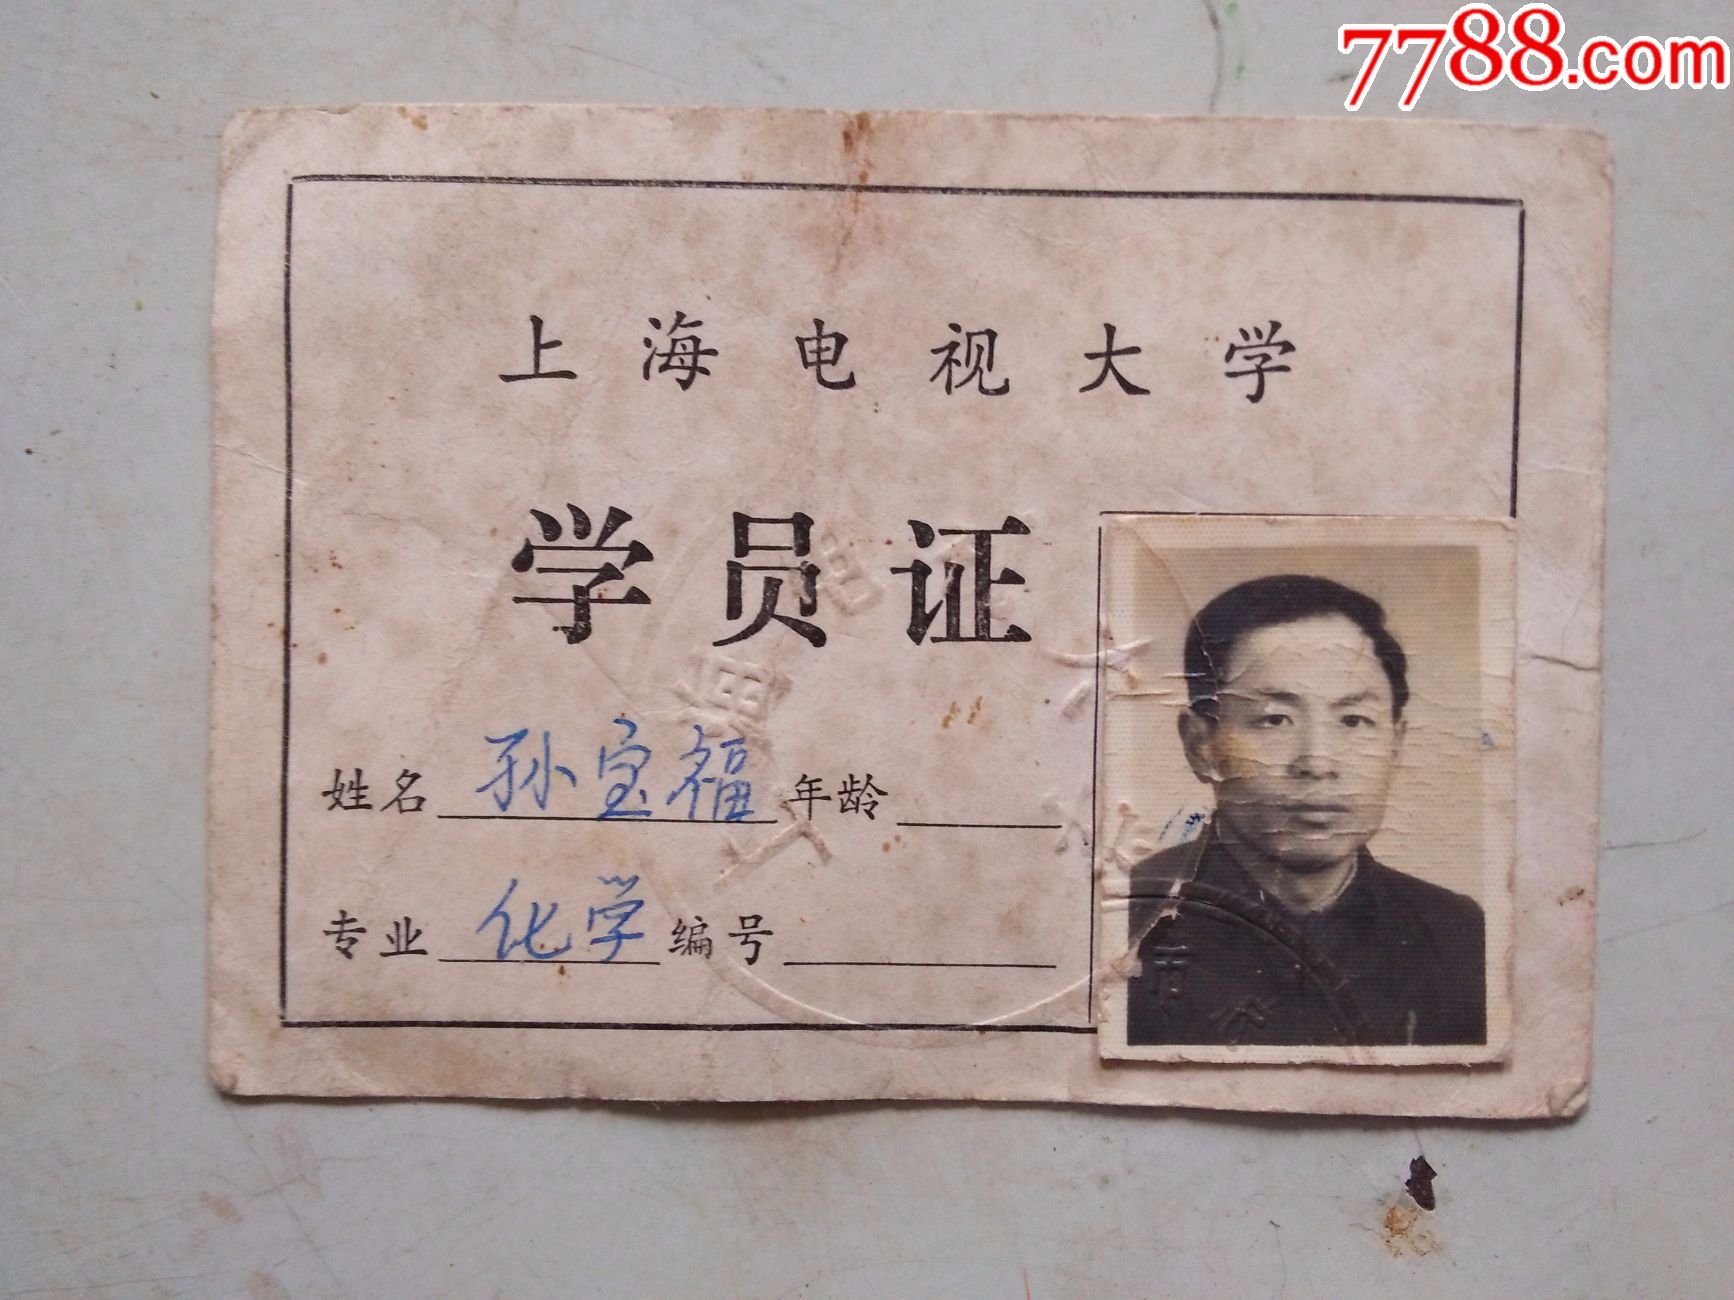 7788.com
上海电视大学
学员证
姓名 孙宝福 年龄
专业 化学 编号